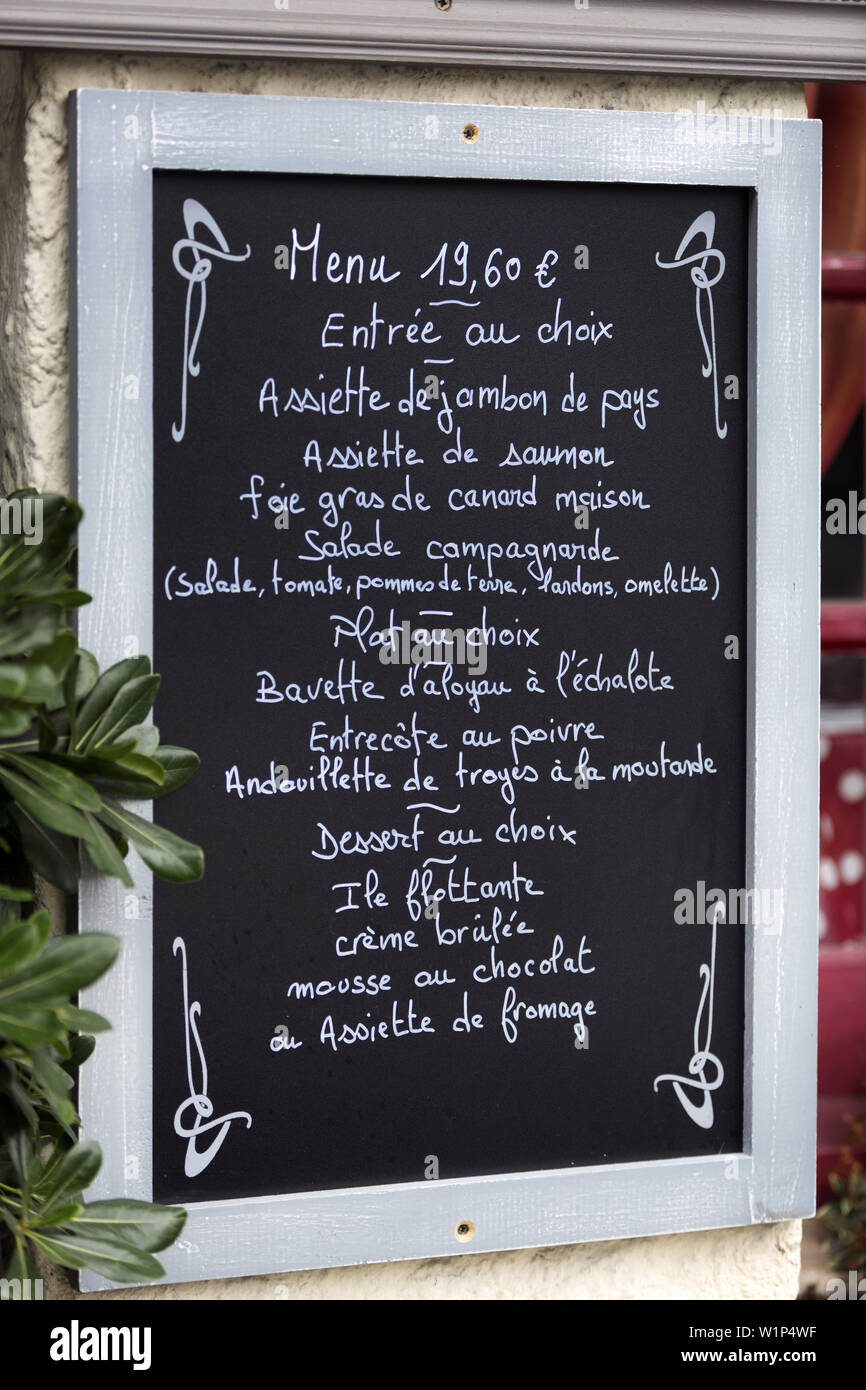 Menu 19,60 €
Entrée au choix
Assiette de jambon de pays
Assiette de saumon
foie gras de canard maison
Salade campagnarde
(Salade, tomate, pommes de terre, lardons, omelette)
Plat au choix
Bavette d'aloyau à l'échalote
Entrecôte au poivre
Andouillette de troyes à la moutarde
Dessert au choix
Ile flottante
crème brûlée
mousse au chocolat
ou Assiette de fromage
alamy
Image ID: W1P4WF
www.alamy.com